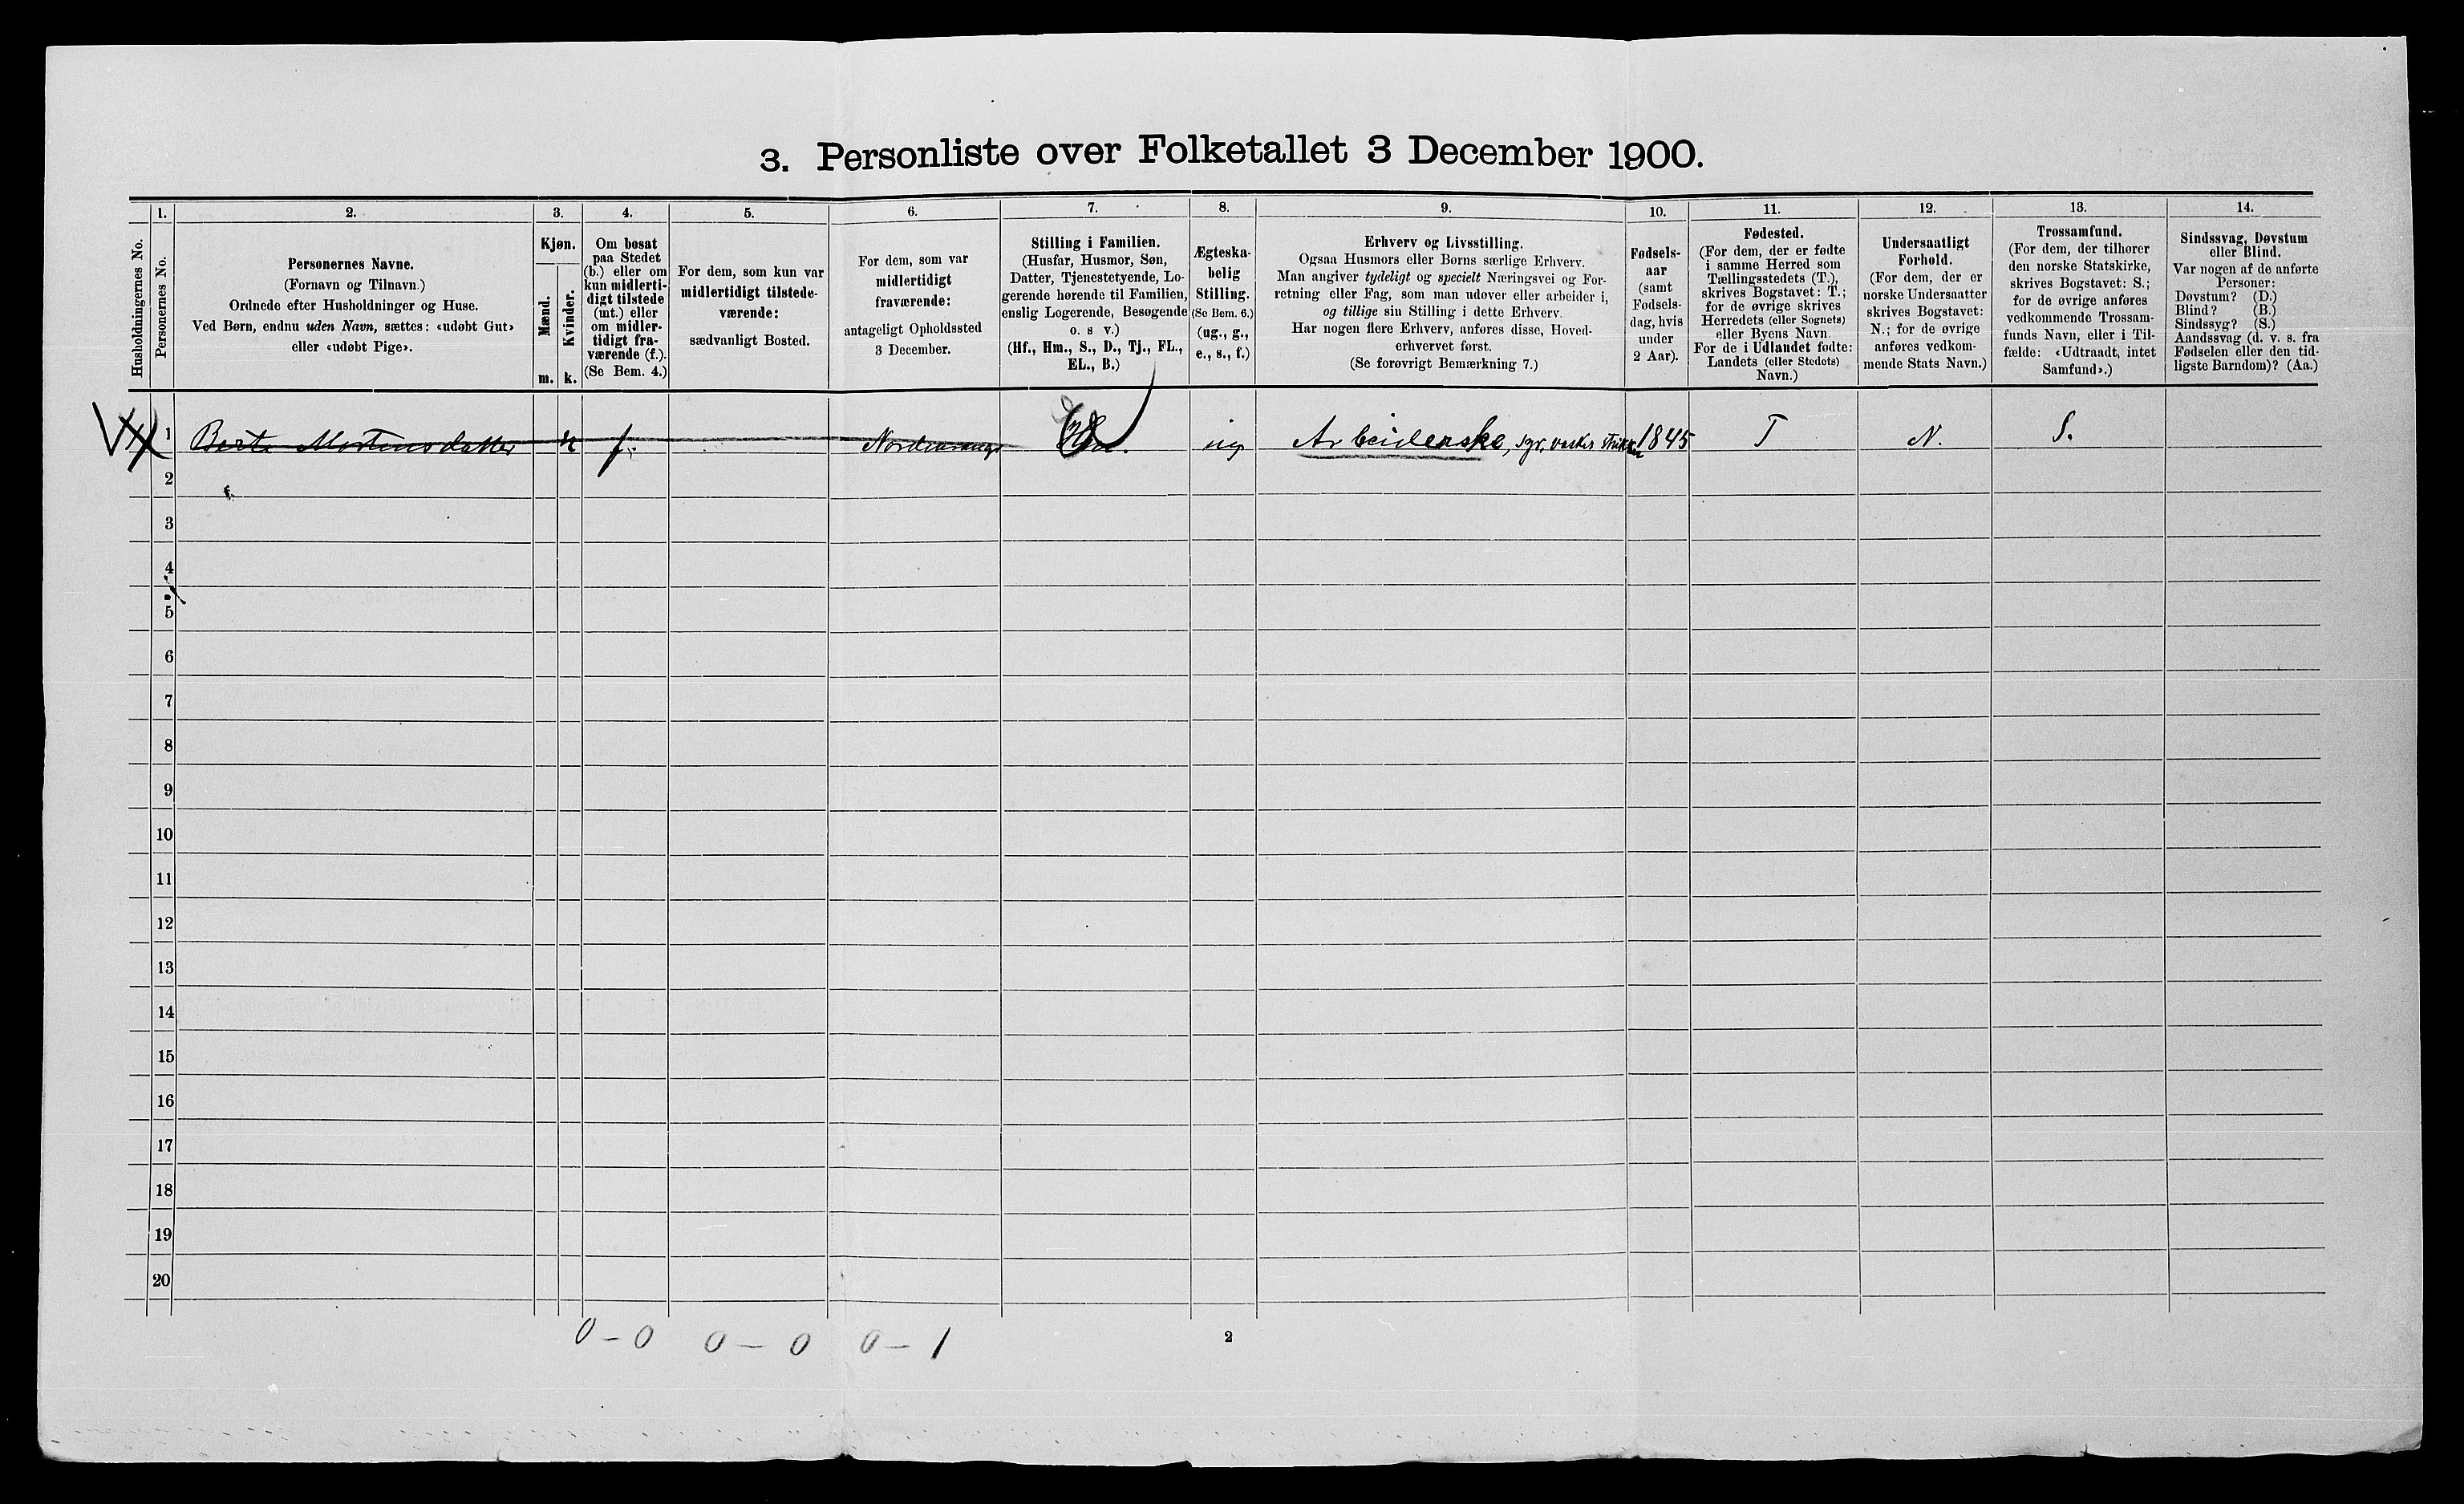 3. Personliste over Folketallet 3 December 1900.
Husholdningernes No.
1.
Personernes No.
2.
Personernes Navne.
(Fornavn og Tilnavn.)
Ordnede efter Husholdninger og Huse.
Ved Børn, endnu uden Navn, sættes: «udøbt Gut»
eller «udøbt Pige».
3.
Kjøn.
Mænd.
Kvinder.
m. k.
4.
Om bosat
paa Stedet
(b.) eller om
kun midlerti-
digt tilstede
(mt.) eller
om midler-
tidigt fra-
værende (f.).
(Se Bem. 4.)
5.
For dem, som kun var
midlertidigt tilstede-
værende:
sædvanligt Bosted.
6.
For dem, som var
midlertidigt
fraværende:
antageligt Opholdssted
3 December.
7.
Stilling i Familien.
(Husfar, Husmor, Søn,
Datter, Tjenestetyende, Lo-
gerende hørende til Familien,
enslig Logerende, Besøgende
o. s v.)
(Hf., Hm., S., D., Tj., FL.,
EL., B.)
8.
Ægteska-
belig
Stilling.
(Se Bem. 6.)
(ug., g.,
e., s., f.)
9.
Erhverv og Livsstilling.
Ogsaa Husmors eller Børns særlige Erhverv.
Man angiver tydeligt og specielt Næringsvei og For-
retning eller Fag, som man udøver eller arbeider i,
og tillige sin Stilling i dette Erhverv.
Har nogen flere Erhverv, anføres disse, Hoved-
erhvervet først.
(Se forøvrigt Bemærkning 7.)
10.
Fødsels-
aar
(samt
Fødsels-
dag, hvis
under
2 Aar).
11.
Fødested.
(For dem, der er fødte
i samme Herred som
Tællingsstedets (T.),
skrives Bogstavet: T.;
for de øvrige skrives
Herredets (eller Sognets)
eller Byens Navn.
For de i Udlandet fødte:
Landets (eller Stedets)
Navn.)
12.
Undersaatligt
Forhold.
(For dem, der er
norske Undersaatter
skrives Bogstavet:
N.; for de øvrige
anføres vedkom-
mende Stats Navn.)
13.
Trossamfund.
(For dem, der tilhører
den norske Statskirke,
skrives Bogstavet: S.;
for de øvrige anføres
vedkommende Trossam-
funds Navn, eller i Til-
fælde: «Udtraadt, intet
Samfund».)
14.
Sindssvag, Døvstum
eller Blind.
Var nogen af de anførte
Personer:
Døvstum? (D.)
Blind? (B.)
Sindssyg? (S.)
Aandssvag (d. v. s. fra
Fødselen eller den tid-
ligste Barndom)? (Aa.)
1 Berte Mortensdatter k f. ug Arbeiderske, syr, vasker 1845 T N. S.
2
3
4
5
6
7
8
9
10
11
12
13
14
15
16
17
18
19
20
0 - 0 0 - 0 0 - 1
2